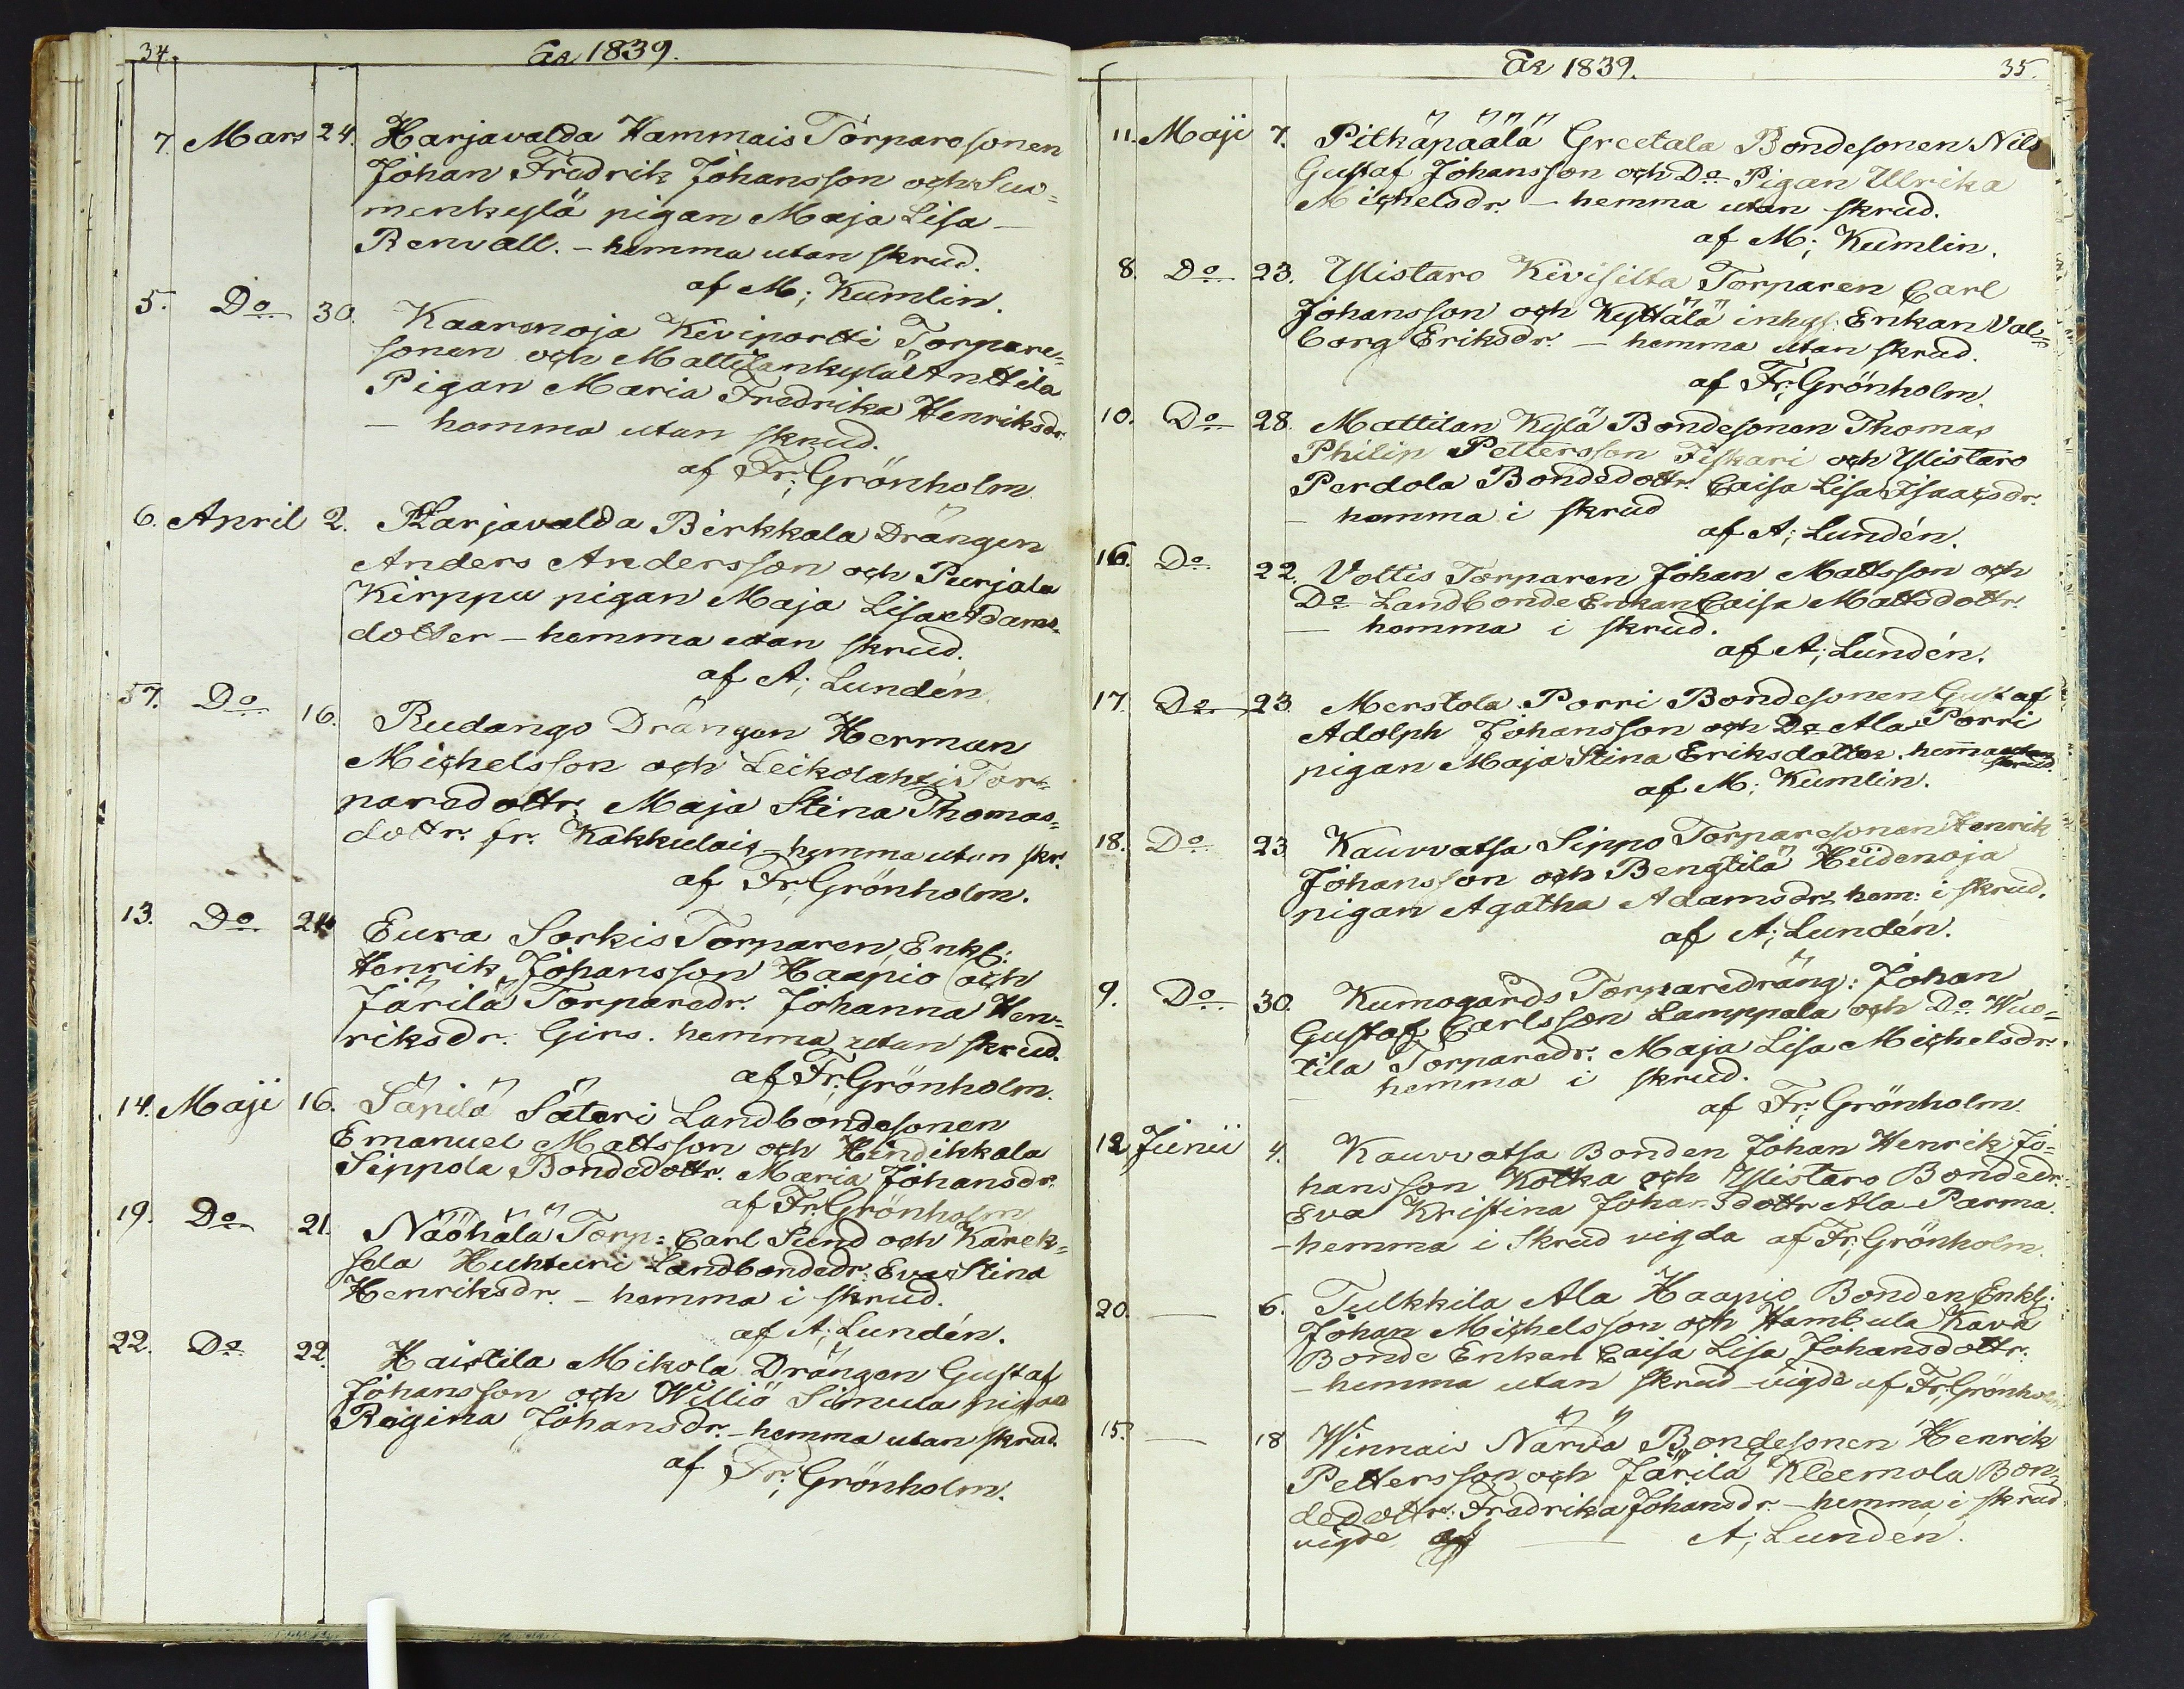 34.
År 1839.
7. Mars 24. Harjavalda Hammais Torparesonen
Johan Fredrik Johansson och Suo=
menkylä pigan Maja Lisa —
Renvall. — hemma utan skrud.
af M; Kumlin.
5. Do 30. Kaarenoja Kiviportti Torpare=
sonen och Mattilankylä Anttila
Pigan Maria Fredrika Henriksdr.
— hemma utan skrud.
af Fr; Grönholm
6. April 2. Harjavalda Birkkala Drängen
Anders Andersson och Purjala
Kirppu pigan Maja Lisa Adams=
dotter — hemma utan skrud.
af A; Lundén
57. Do 16. Rudango Drängen Herman
Michelsson och Leikolahti Tor=
paredottr. Maja Stina Thomas=
dottr. fr. Kakkulais — hemma utan skr.
af Fr; Grönholm.
13. Do 24. Eura Sorkis Torparen, Enkl:
Henrik Johansson Haapio och
Järilä Torparedr. Johanna Hen=
riksdr. Girs. hemma utan skrud.
af Fr; Grönholm.
14. Maji 16. Säpilä Säteri Landbondesonen
Emanuel Mattsson och Hindikkala
Sippola Bondedottr. Maria Johansdr.
af Fr; Grönholm
19. Do 21. Näöhälä Torp: Carl Sund och Karek=
sela Huhturi Landbondedr. Eva Stina
Henriksdr. — hemma i skrud.
af A; Lundén.
22. Do 22. Haistila Mikola Drängen Gustaf
Johansson och Williö Simula pigan
Regina Johansdr. — hemma utan skrud.
af Fr; Grönholm.
År 1839.
35.
11. Maji 7. Pitkäpäälä Greetala Bondesonen Nils
Gustaf Johansson och Do Pigan Ulrika
Michelsdr. — hemma utan skrud.
af M; Kumlin.
8. Do 23. Ylistaro Kivisilta Torparen Carl
Johansson och Kyttälä inhys: Enkan Val=
borg Eriksdr. — hemma utan skrud.
af Fr; Grönholm.
10. Do 28. Mattilan Kylä Bondesonen Thomas
Philip Pettersson Fiskari och Ylistaro
Perdola Bondedottr. Caisa Lisa Isaacsdr.
— hemma i skrud
af A; Lundén.
16. Do 22. Voltis Torparen Johan Mattsson och
Do Landbonde Enkan Caisa Mattsdottr.
— hemma i skrud.
af A; Lundén.
17. Do 23. Merstola Porri Bondesonen Gustaf
Adolph Johansson och Do Ala Porri
pigan Maja Stina Eriksdotter. hemma utan
skrud.
af M; Kumlin.
18. Do 23 Kauvvatsa Sippo Torparesonen Henrik
Johansson och Bengtilä Hiidenoja
pigan Agatha Adamsdr. hem: i skrud.
af A; Lundén.
9. Do 30. Kumogårds Torparedräng: Johan
Gustaf Carlsson Lamppala och Do Wuo=
tila Torparedr. Maja Lisa Michelsdr.
— hemma i skrud.
af Fr; Grönholm.
12 Junii 4. Kauvvatsa Bonden Johan Henrik Jo=
hansson Kotka och Ylistaro Bondedr.
Eva Kristina Johansdottr Ala-Parma.
— hemma i skrud vigda af Fr; Grönholm.
20. — 6. Tulkkila Ala Haapio Bonden Enkl:
Johan Michelsson och Hambula Kava
Bonde Enkan Caisa Lisa Johansdottr.
— hemma utan skrud — vigde af Fr; Grönholm
15. — 18 Winnais Närvä Bondesonen Henrik
Pettersson och Järilä Kleemola Bon=
dedottr. Fredrika Johansdr. — hemma i skrud
vigde af — A; Lundén.